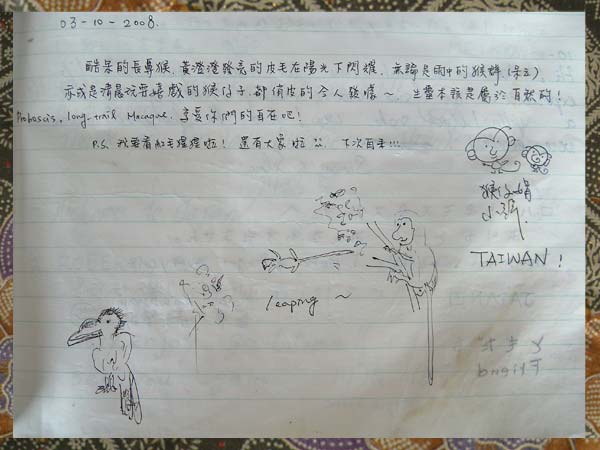 03-10-2008.
酷呆的長鼻猴, 黃澄澄發亮的皮毛在陽光下閃耀, 無論是雨中的猴群
亦或是清晨玩耍嬉戲的猴仔子, 都俏皮的令人發噱～ 生靈本該是屬於自然的!
Proboscis, long-trail Macaque, 享受你們的自在吧!
P.S. 我要看紅毛猩猩啦! 還有大象啦 下次再來!!!
猴仔
TAIWAN!
leaping ～
Friend